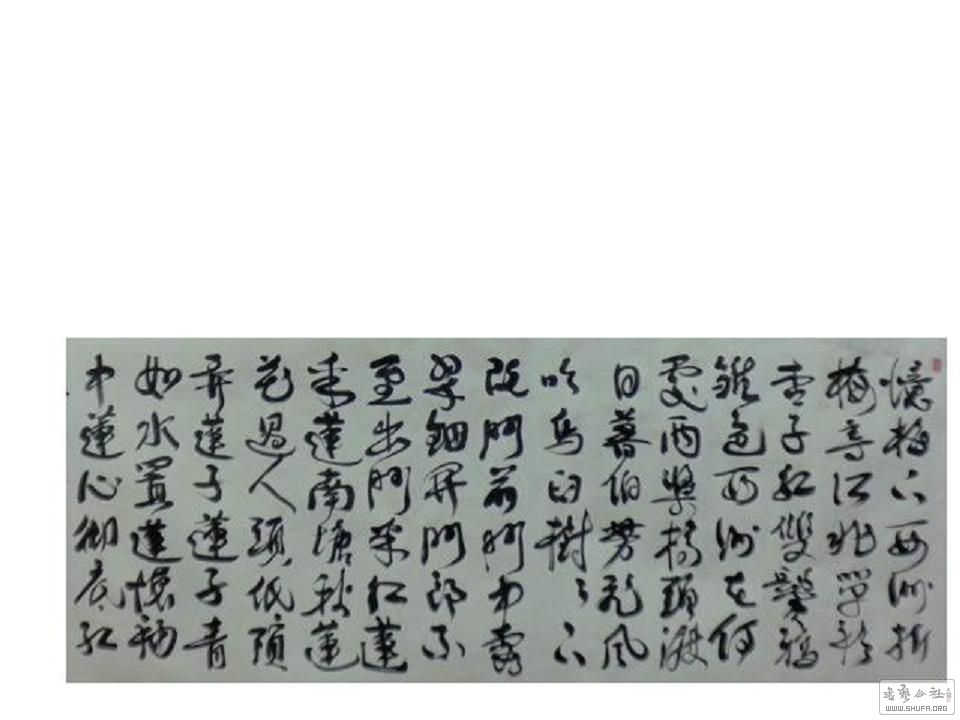 憶梅下西洲折
梅寄江北單衫
杏子紅雙鬢鴉
雛色西洲在何
處兩槳橋頭渡
日暮伯勞飛風
吹烏臼樹々下
即門前門中露
翠鈿開門郎不
至出門采紅蓮
采蓮南塘秋蓮
花過人頭低頭
弄蓮子蓮子青
如水置蓮懷袖
中蓮心徹底紅
书艺公社
WWW.SHUFA.ORG